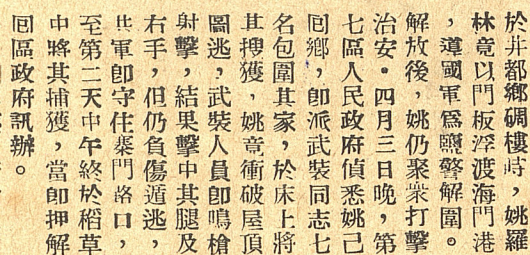 於井都鄉碉樓時，姚羅
林竟以門板浮渡海門港
，導國軍爲鹽警解圍。
解放後，姚仍聚衆打擊
治安。四月三日晚，第
七區人民政府偵悉姚已
囘鄉，卽派武裝同志七
名包圍其家，於床上將
其搜獲，姚竟衝破屋頂
圖逃，武裝人員卽鳴槍
射擊，結果擊中其腿及
右手，但仍負傷遁逃，
共軍卽守住寨門路口，
至第二天中午終於稻草
中將其捕獲，當卽押解
囘區政府訊辦。